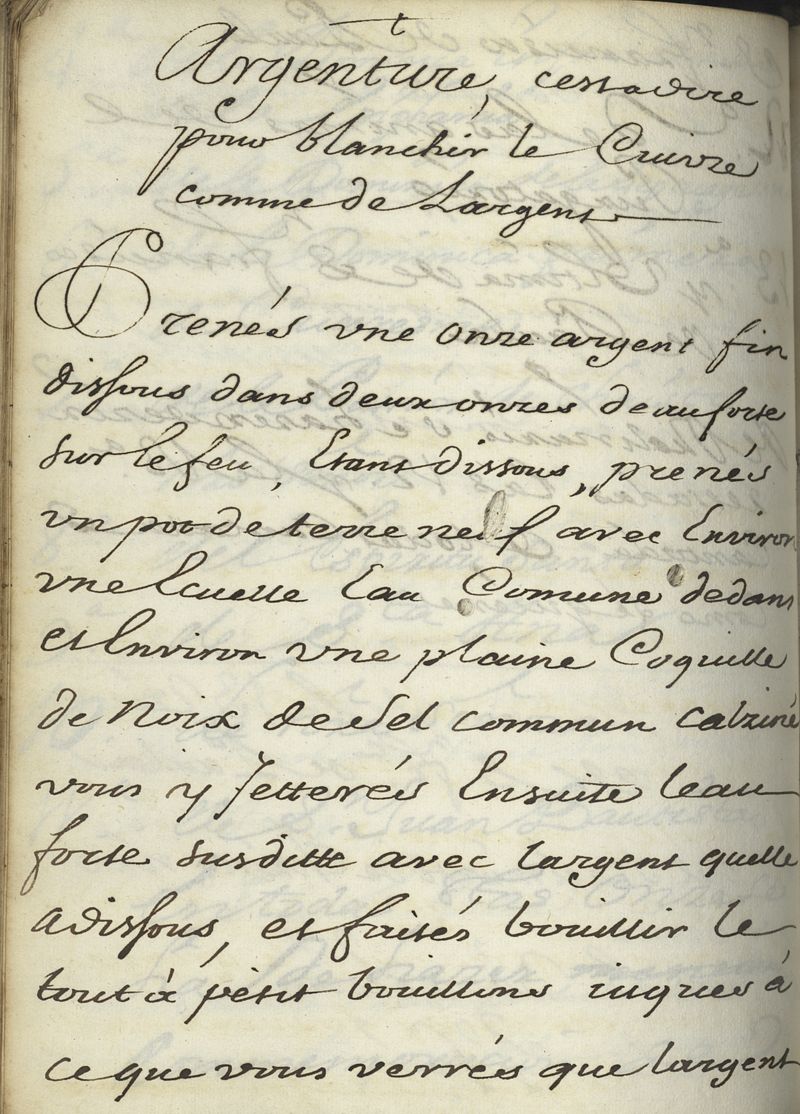 Argenture, cestadire
pour blanchir le Cuivre
comme de Largent
Prenés vne onze argent fin
dissous dans deux onzes deauforte
sur le feu, Etant dissous, prenés
vn pot de terre neuf avec Environ
vne Ecuelle Eau Comune dedans
et Environ vne plaine Coquille
de Noix de Sel commun calziné
vous y Jetterés Ensuite leau
forte susditte avec largent quelle
a dissous, et faités bouillir le
tout à pètit bouillons iusques à
ce que vous verrés que largent